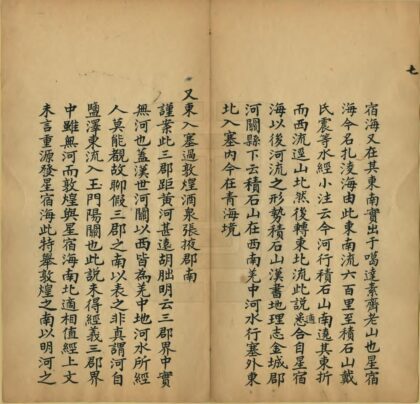 七
宿海又在其東南實出于噶達素齊老山也星宿
海今名扎淩海由此東南流六百里至積石山戴
氏震等水經小注云今河行積石山南遶其東折
而西流逕山北然後轉東北流此說悉合自星宿
適
海以後河流之形勢積石山漢書地理志金城郡
河關縣下云積石山在西南羌中河水行塞外東
北入塞內今在青海境
又東入塞過敦煌酒泉張掖郡南
謹案此三郡距黃河甚遠胡朏明云三郡界中實
無河也蓋漢世河關以西皆為羌中地河水所經
人莫能覩故聊假三郡之南以表之非真謂河自
鹽澤東流入玉門陽關也此說未得經義三郡界
中雖無河而敦煌與星宿海南北適相值經上文
未言重源發星宿海此特舉敦煌之南以明河之